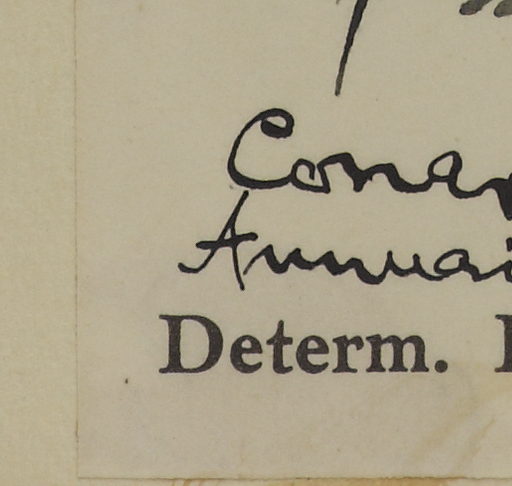 Conar
Annuai
Determ.